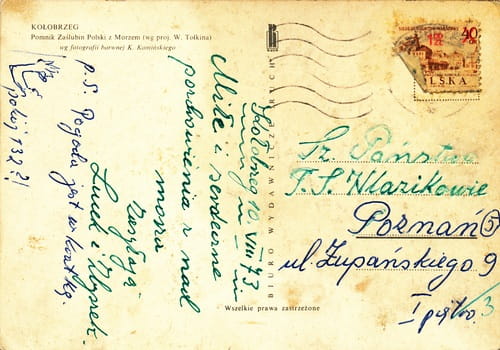 KOŁOBRZEG
Pomnik Zaślubin Polski z Morzem (wg proj. W. Tołkina)
wg fotografii barwnej K. Kamińskiego
40
LSKA
BIURO WYDAWNICZE RUCH
Kołobrzeg 10.VIII 73
Miłe i serdeczne
pozdrowienia z nad
morza
zasyłają
Lusek i Zbyszek
p.S. Pogoda jest w kratkę.
pokój 132 !
Sz. Państwo
T. S. Wlazikowie
Poznań 5
ul. Żupańskiego 9
I piętro. /3
Wszelkie prawa zastrzeżone